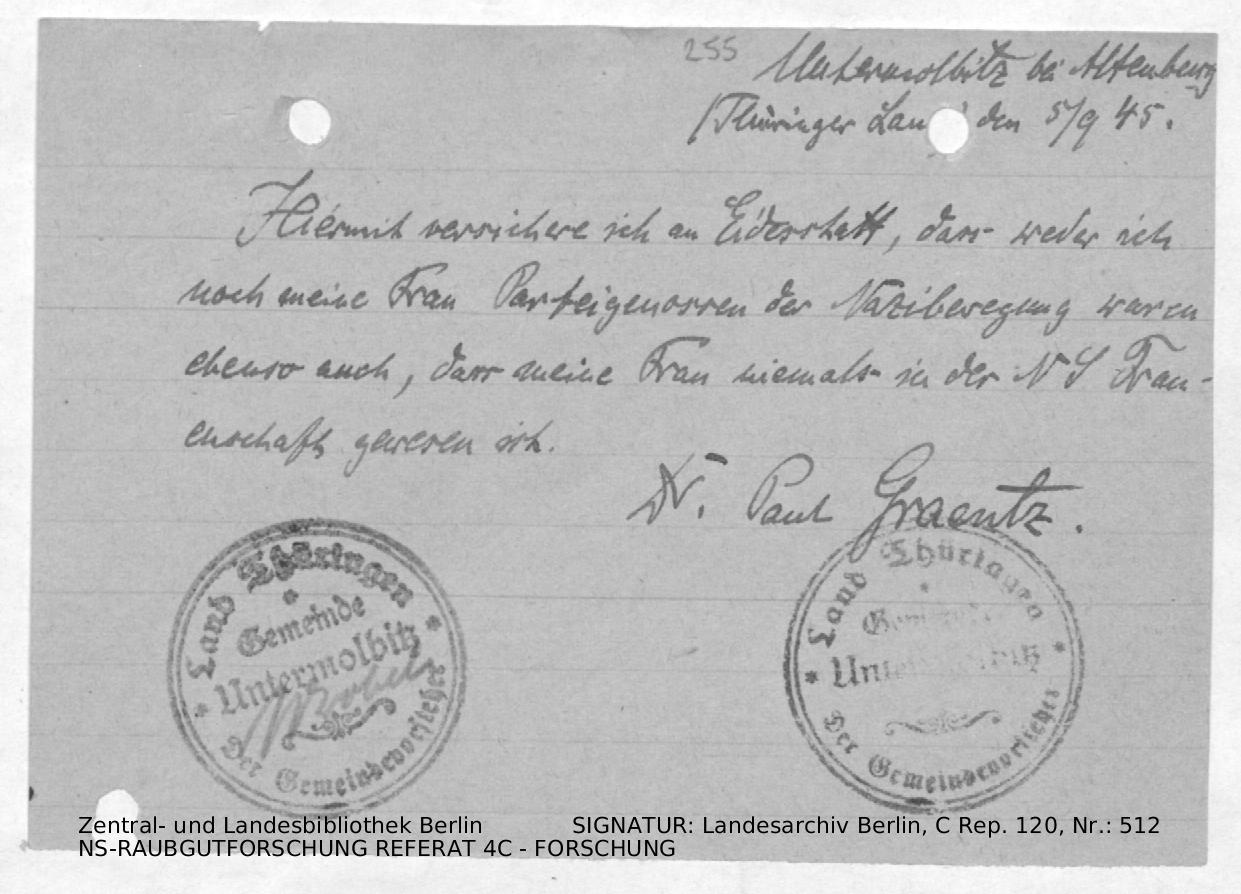 255
Untermolbitz bei Altenburg
/Thüringer Lan den 5/9 45.
Hiermit versichere ich an Eidesstatt, dass weder ich
noch meine Frau Parteigenossen der Nazibewegung waren
ebenso auch, dass meine Frau niemals in der N S Frau-
enschaft gewesen ist.
Dr. Paul Graentz.
Land Thüringen
Gemeinde
Untermolbitz
Der Gemeindevorsteher
Land Thüringen
Gemeinde
Untermolbitz
Der Gemeindevorsteher
Zentral- und Landesbibliothek Berlin SIGNATUR: Landesarchiv Berlin, C Rep. 120, Nr.: 512
NS-RAUBGUTFORSCHUNG REFERAT 4C - FORSCHUNG